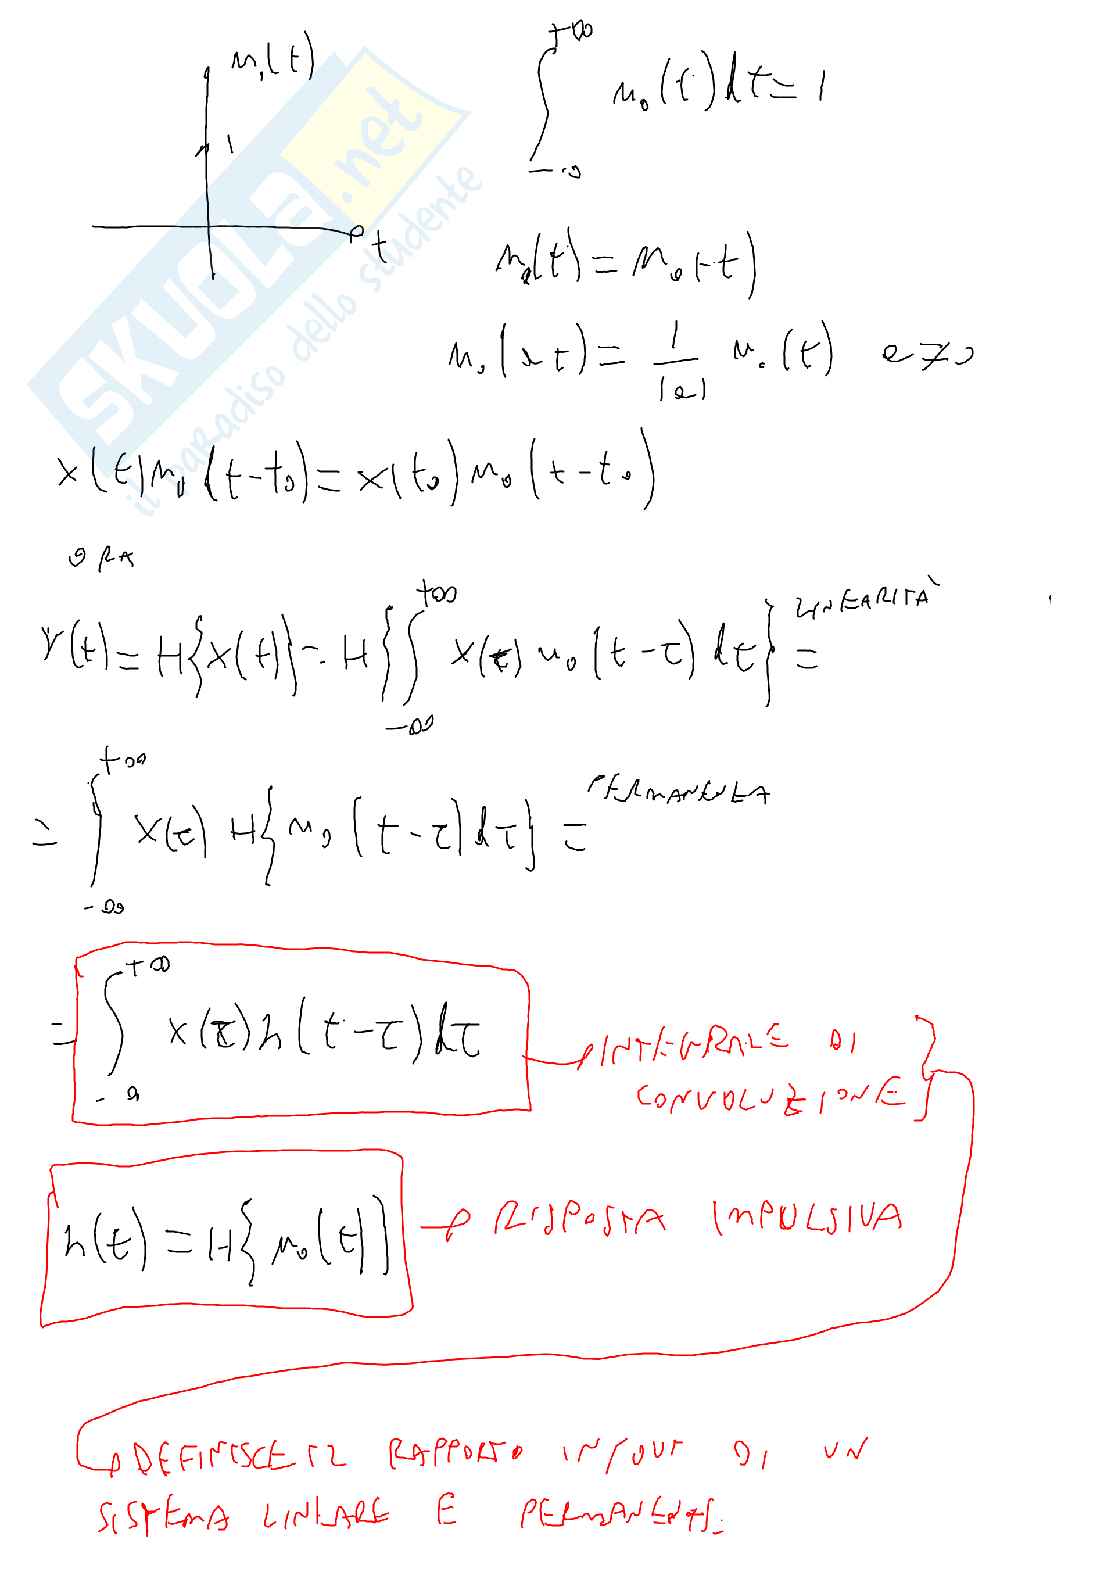 u₀(t)
1
t
∫_{-∞}^{+∞} u₀(t)dt = 1
u₀(t) = u₀(-t)
u₀(at) = 1/|a| u₀(t) a≠0
x(t)u₀(t-t₀) = x(t₀)u₀(t-t₀)
ORA
Y(t) = H{x(t)} = H{∫_{-∞}^{+∞} x(τ)u₀(t-τ)dτ} = LINEARITÀ
= ∫_{-∞}^{+∞} x(τ) H{u₀(t-τ)dτ} = PERMANENZA
= ∫_{-∞}^{+∞} x(τ)h(t-τ)dτ → INTEGRALE DI
CONVOLUZIONE
h(t) = H{u₀(t)} → RISPOSTA IMPULSIVA
→ DEFINISCE IL RAPPORTO IN/OUT DI UN
SISTEMA LINEARE E PERMANENTE.
SKUOLA.net
il paradiso dello studente